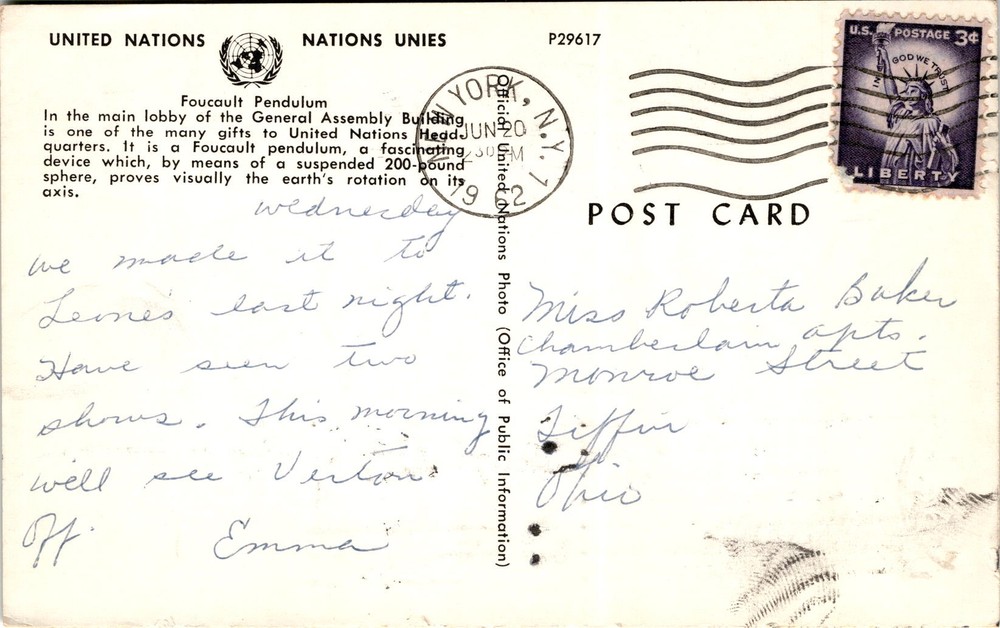 UNITED NATIONS NATIONS UNIES
P29617
Foucault Pendulum
In the main lobby of the General Assembly Building
is one of the many gifts to United Nations Head-
quarters. It is a Foucault pendulum, a fascinating
device which, by means of a suspended 200-pound
sphere, proves visually the earth's rotation on its
axis.
Wednesday
We made it to
Leone's last night.
Have seen two
shows. This morning
we'll see
off.
Emma
Official United Nations Photo (Office of Public Information)
NEW YORK, N.Y. 1
JUN 20
30 PM
19 2
U.S. POSTAGE 3¢
IN GOD WE TRUST
LIBERTY
POST CARD
Miss Roberta Baker
Chamberlain Apts.
Monroe Street
Tiffin
Ohio